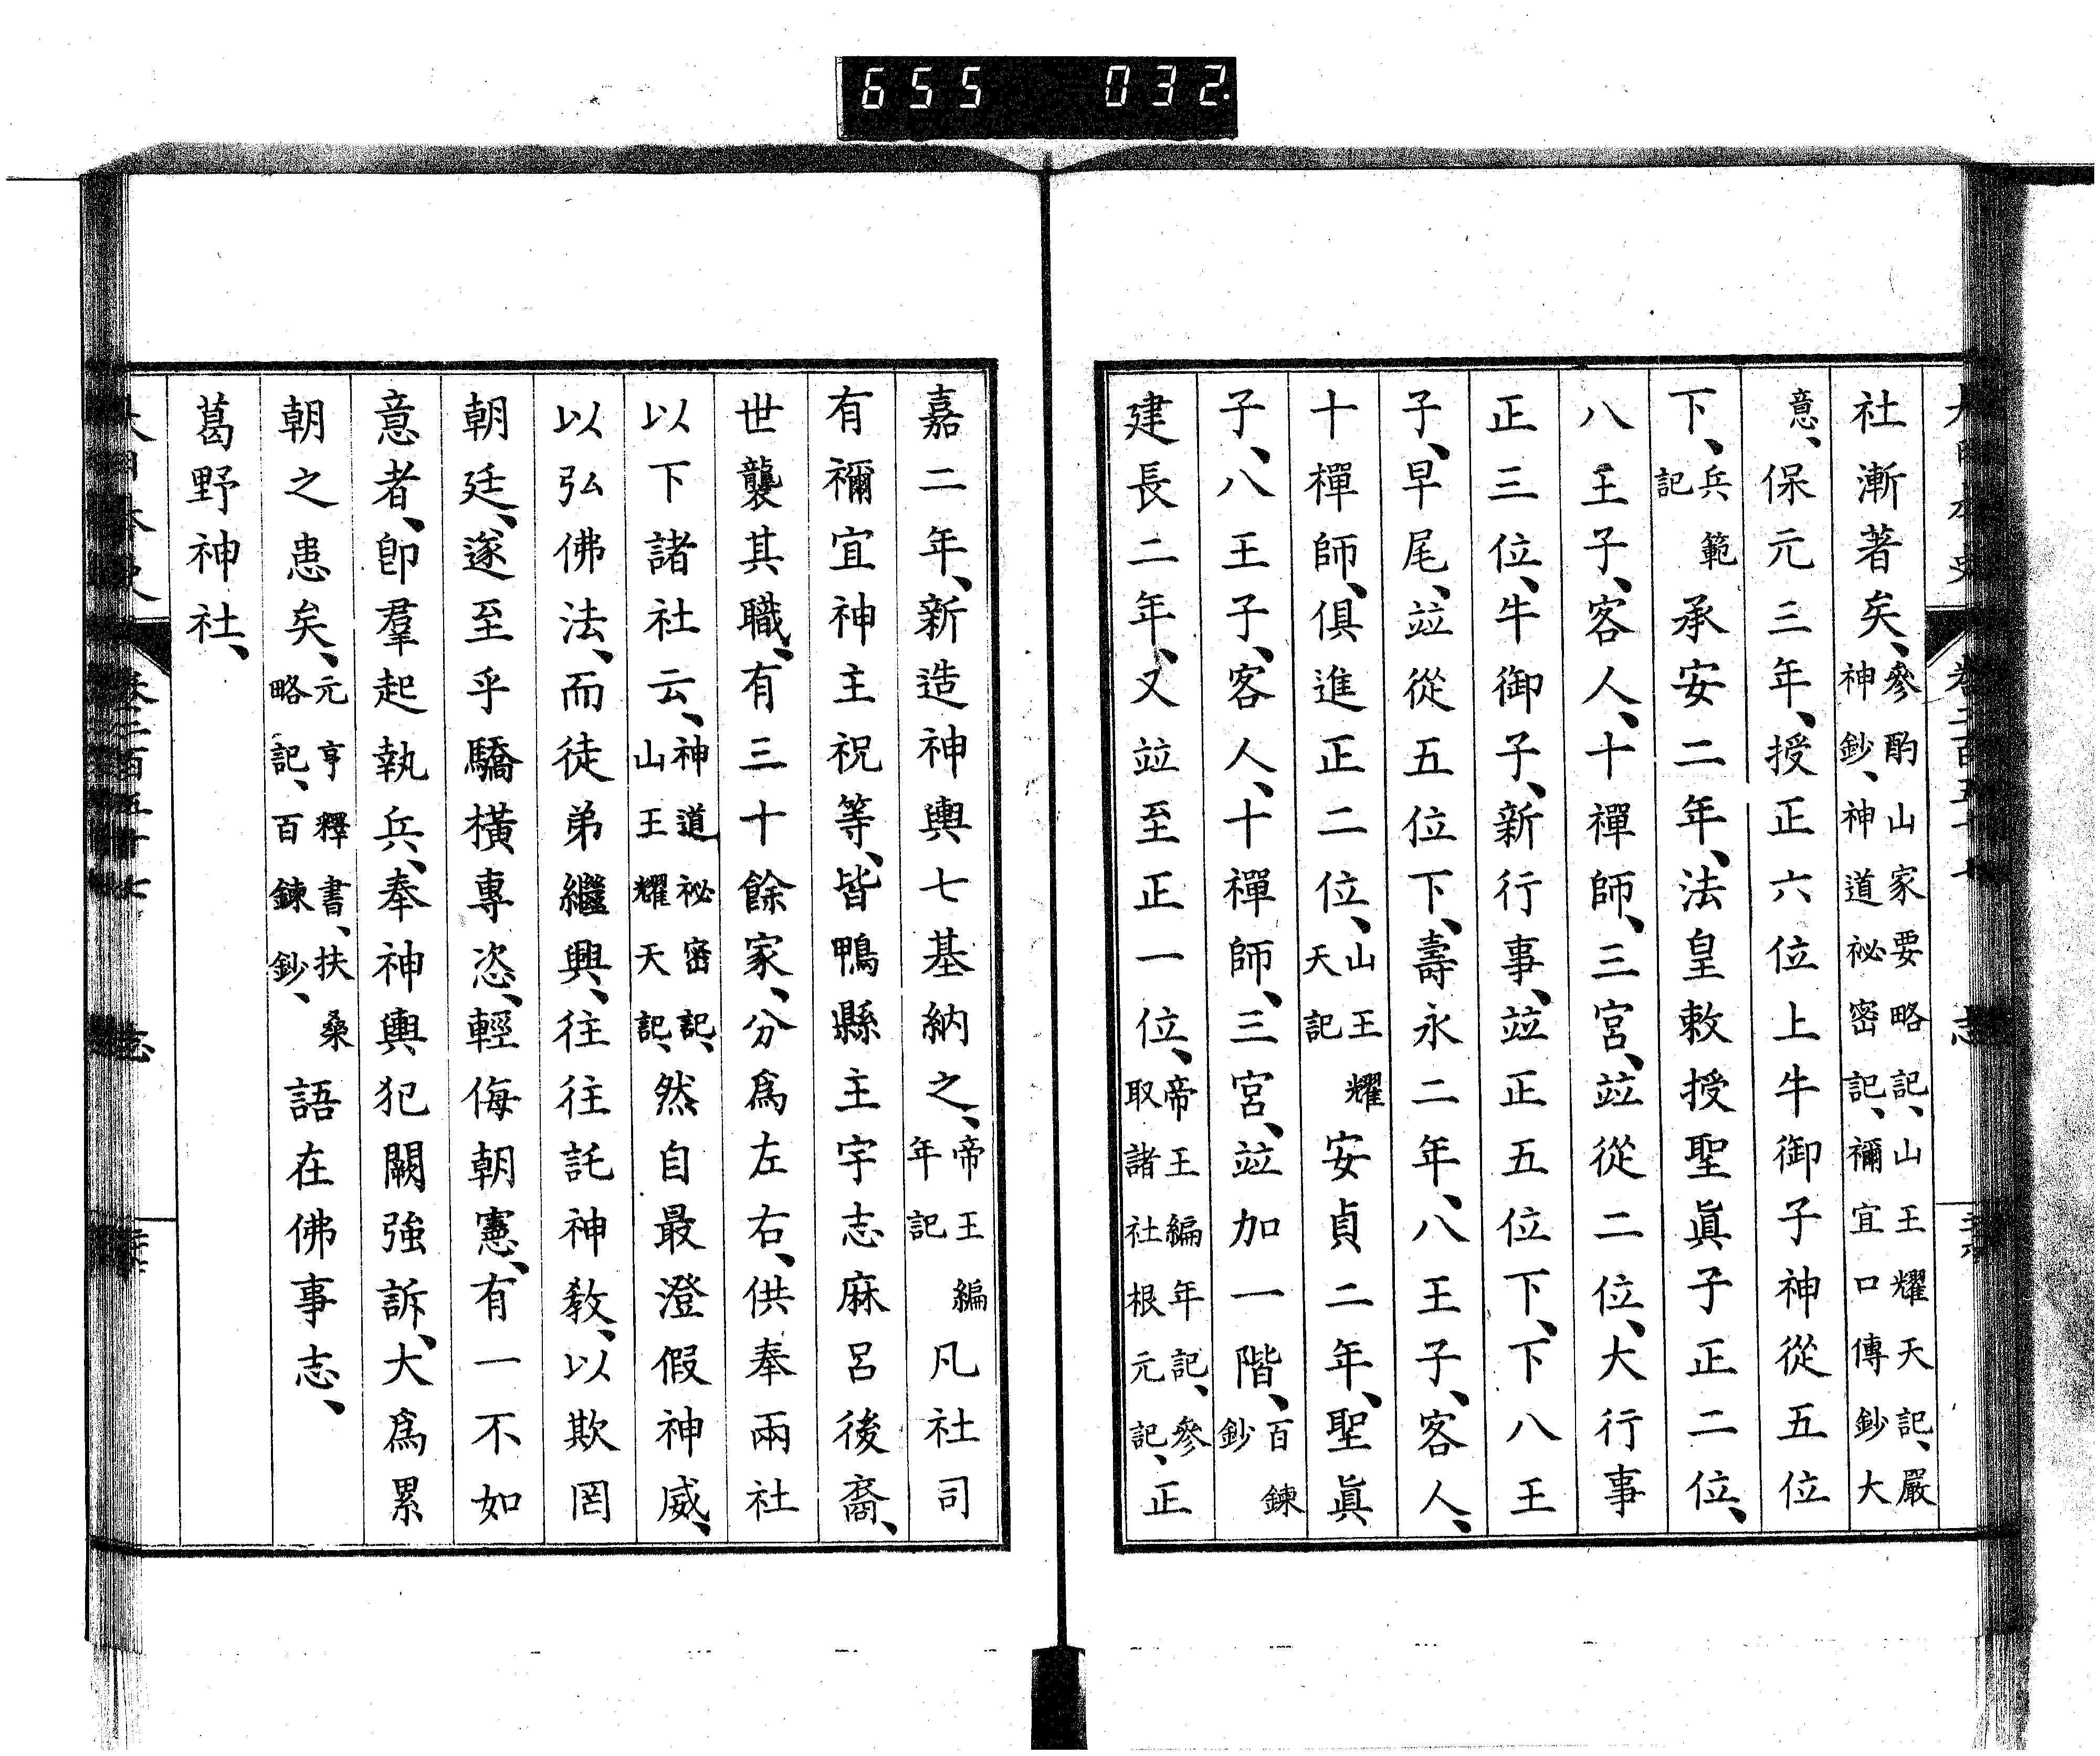 655 032.
社漸著矣、參酌山家要略記、山王耀天記、嚴神鈔、神道祕密記、禰宜口傳鈔大
意、保元三年、授正六位上牛御子神從五位
下、兵範記承安二年、法皇敕授聖眞子正二位、
八王子、客人、十禪師、三宮、竝從二位、大行事
正三位、牛御子、新行事、竝正五位下、下八王
子、早尾、竝從五位下、壽永二年、八王子、客人、
十禪師、俱進正二位、山王耀天記安貞二年、聖眞
子、八王子、客人、十禪師、三宮、竝加一階、百鍊鈔
建長二年、又竝至正一位、帝王編年記、參取諸社根元記、正
嘉二年、新造神輿七基納之、帝王編年記凡社司
有禰宜神主祝等、皆鴨縣主宇志麻呂後裔、
世襲其職、有三十餘家、分爲左右、供奉兩社
以下諸社云、神道祕密記、山王耀天記、然自最澄假神威、
以弘佛法、而徒弟繼興、往往託神敎、以欺罔
朝廷、遂至乎驕橫專恣、輕侮朝憲、有一不如
意者、卽羣起執兵、奉神輿犯闕強訴、大爲累
朝之患矣、元亨釋書、扶桑略記、百鍊鈔、語在佛事志、
葛野神社、